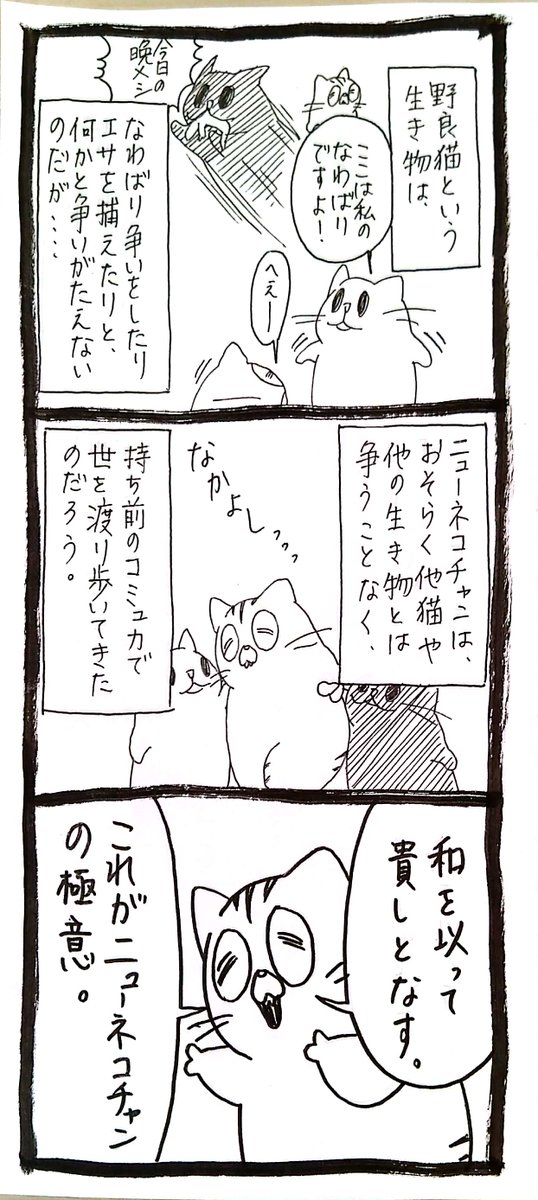 野良猫という
生き物は、
ここは私の
なわばり
ですよ！
今日の
晩メシ
へぇー
なわばり争いをしたり
エサを捕えたりと、
何かと争いがたえない
のだが‥‥
ニューネコチャンは、
おそらく他猫や
他の生き物とは
争うことなく、
なかよしッッッ
持ち前のコミュカで
世を渡り歩いてきた
のだろう。
和を以って
貴しとなす。
これがニューネコチャン
の極意。